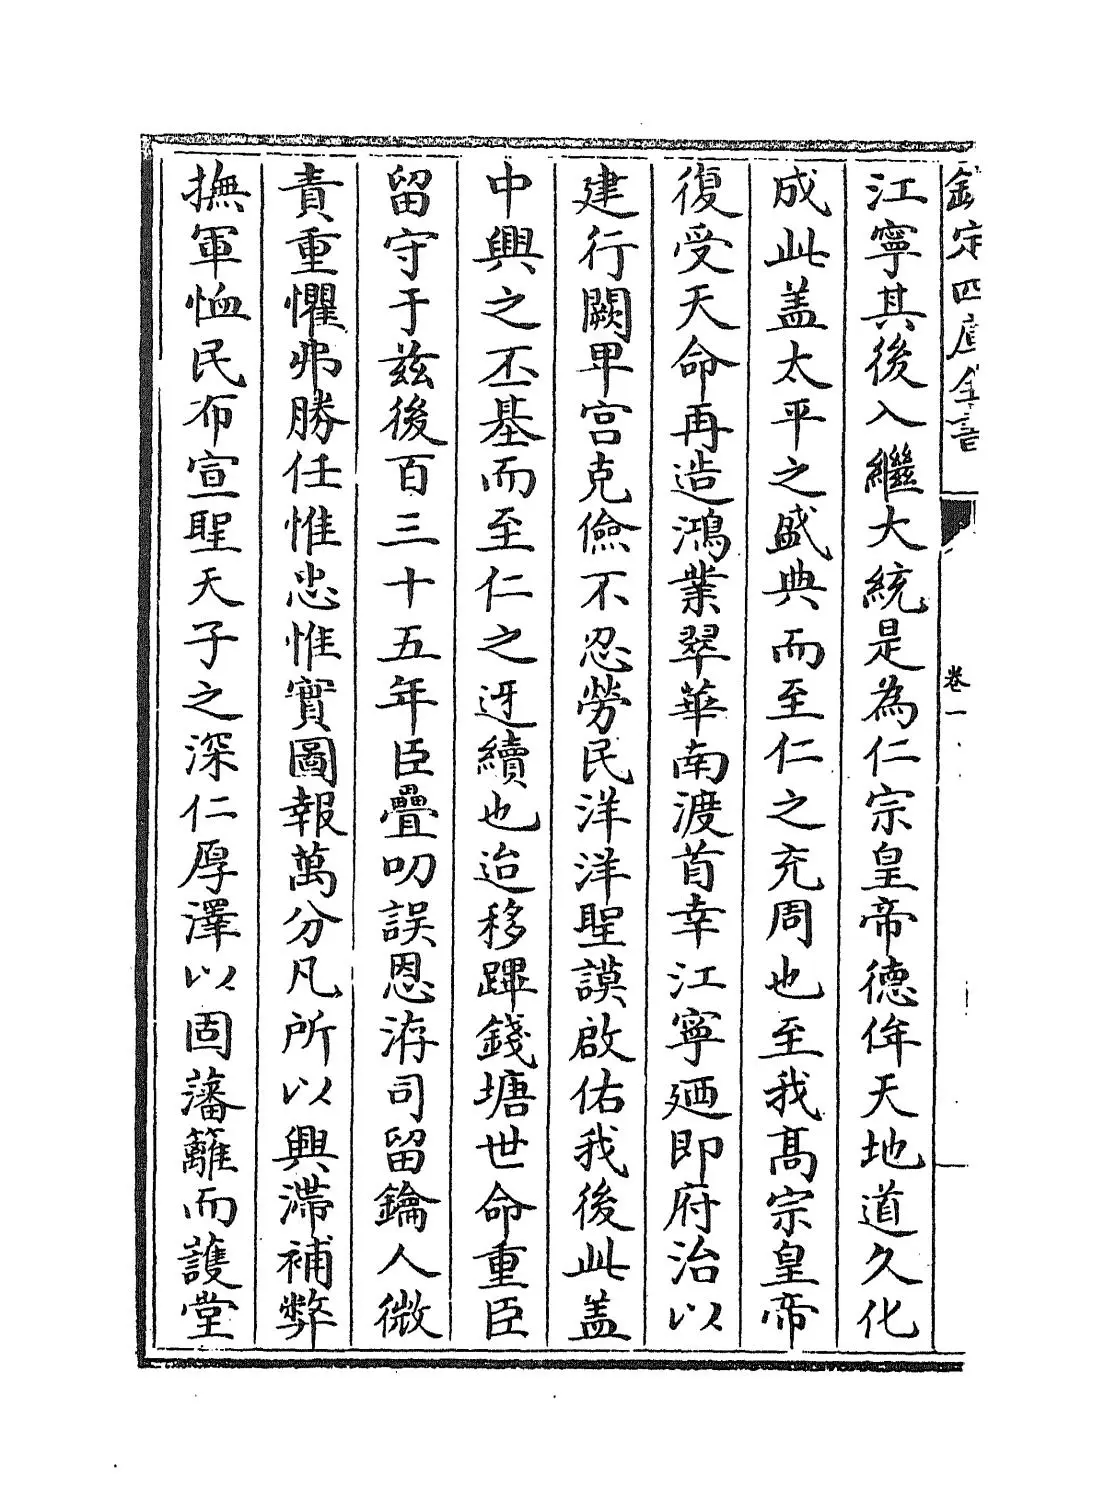 欽定四庫全書
卷一
江寧其後入繼大統是為仁宗皇帝德侔天地道久化
成此盖太平之盛典而至仁之充周也至我髙宗皇帝
復受天命再造鴻業翠華南渡首幸江寧廼即府治以
建行闕卑宫克儉不忍勞民洋洋聖謨啟佑我後此盖
中興之丕基而至仁之迓續也迨移蹕錢塘世命重臣
留守于兹後百三十五年臣疊叨誤恩洊司留鑰人微
責重懼弗勝任惟忠惟實圖報萬分凡所以興滯補弊
撫軍恤民布宣聖天子之深仁厚澤以固藩籬而護堂